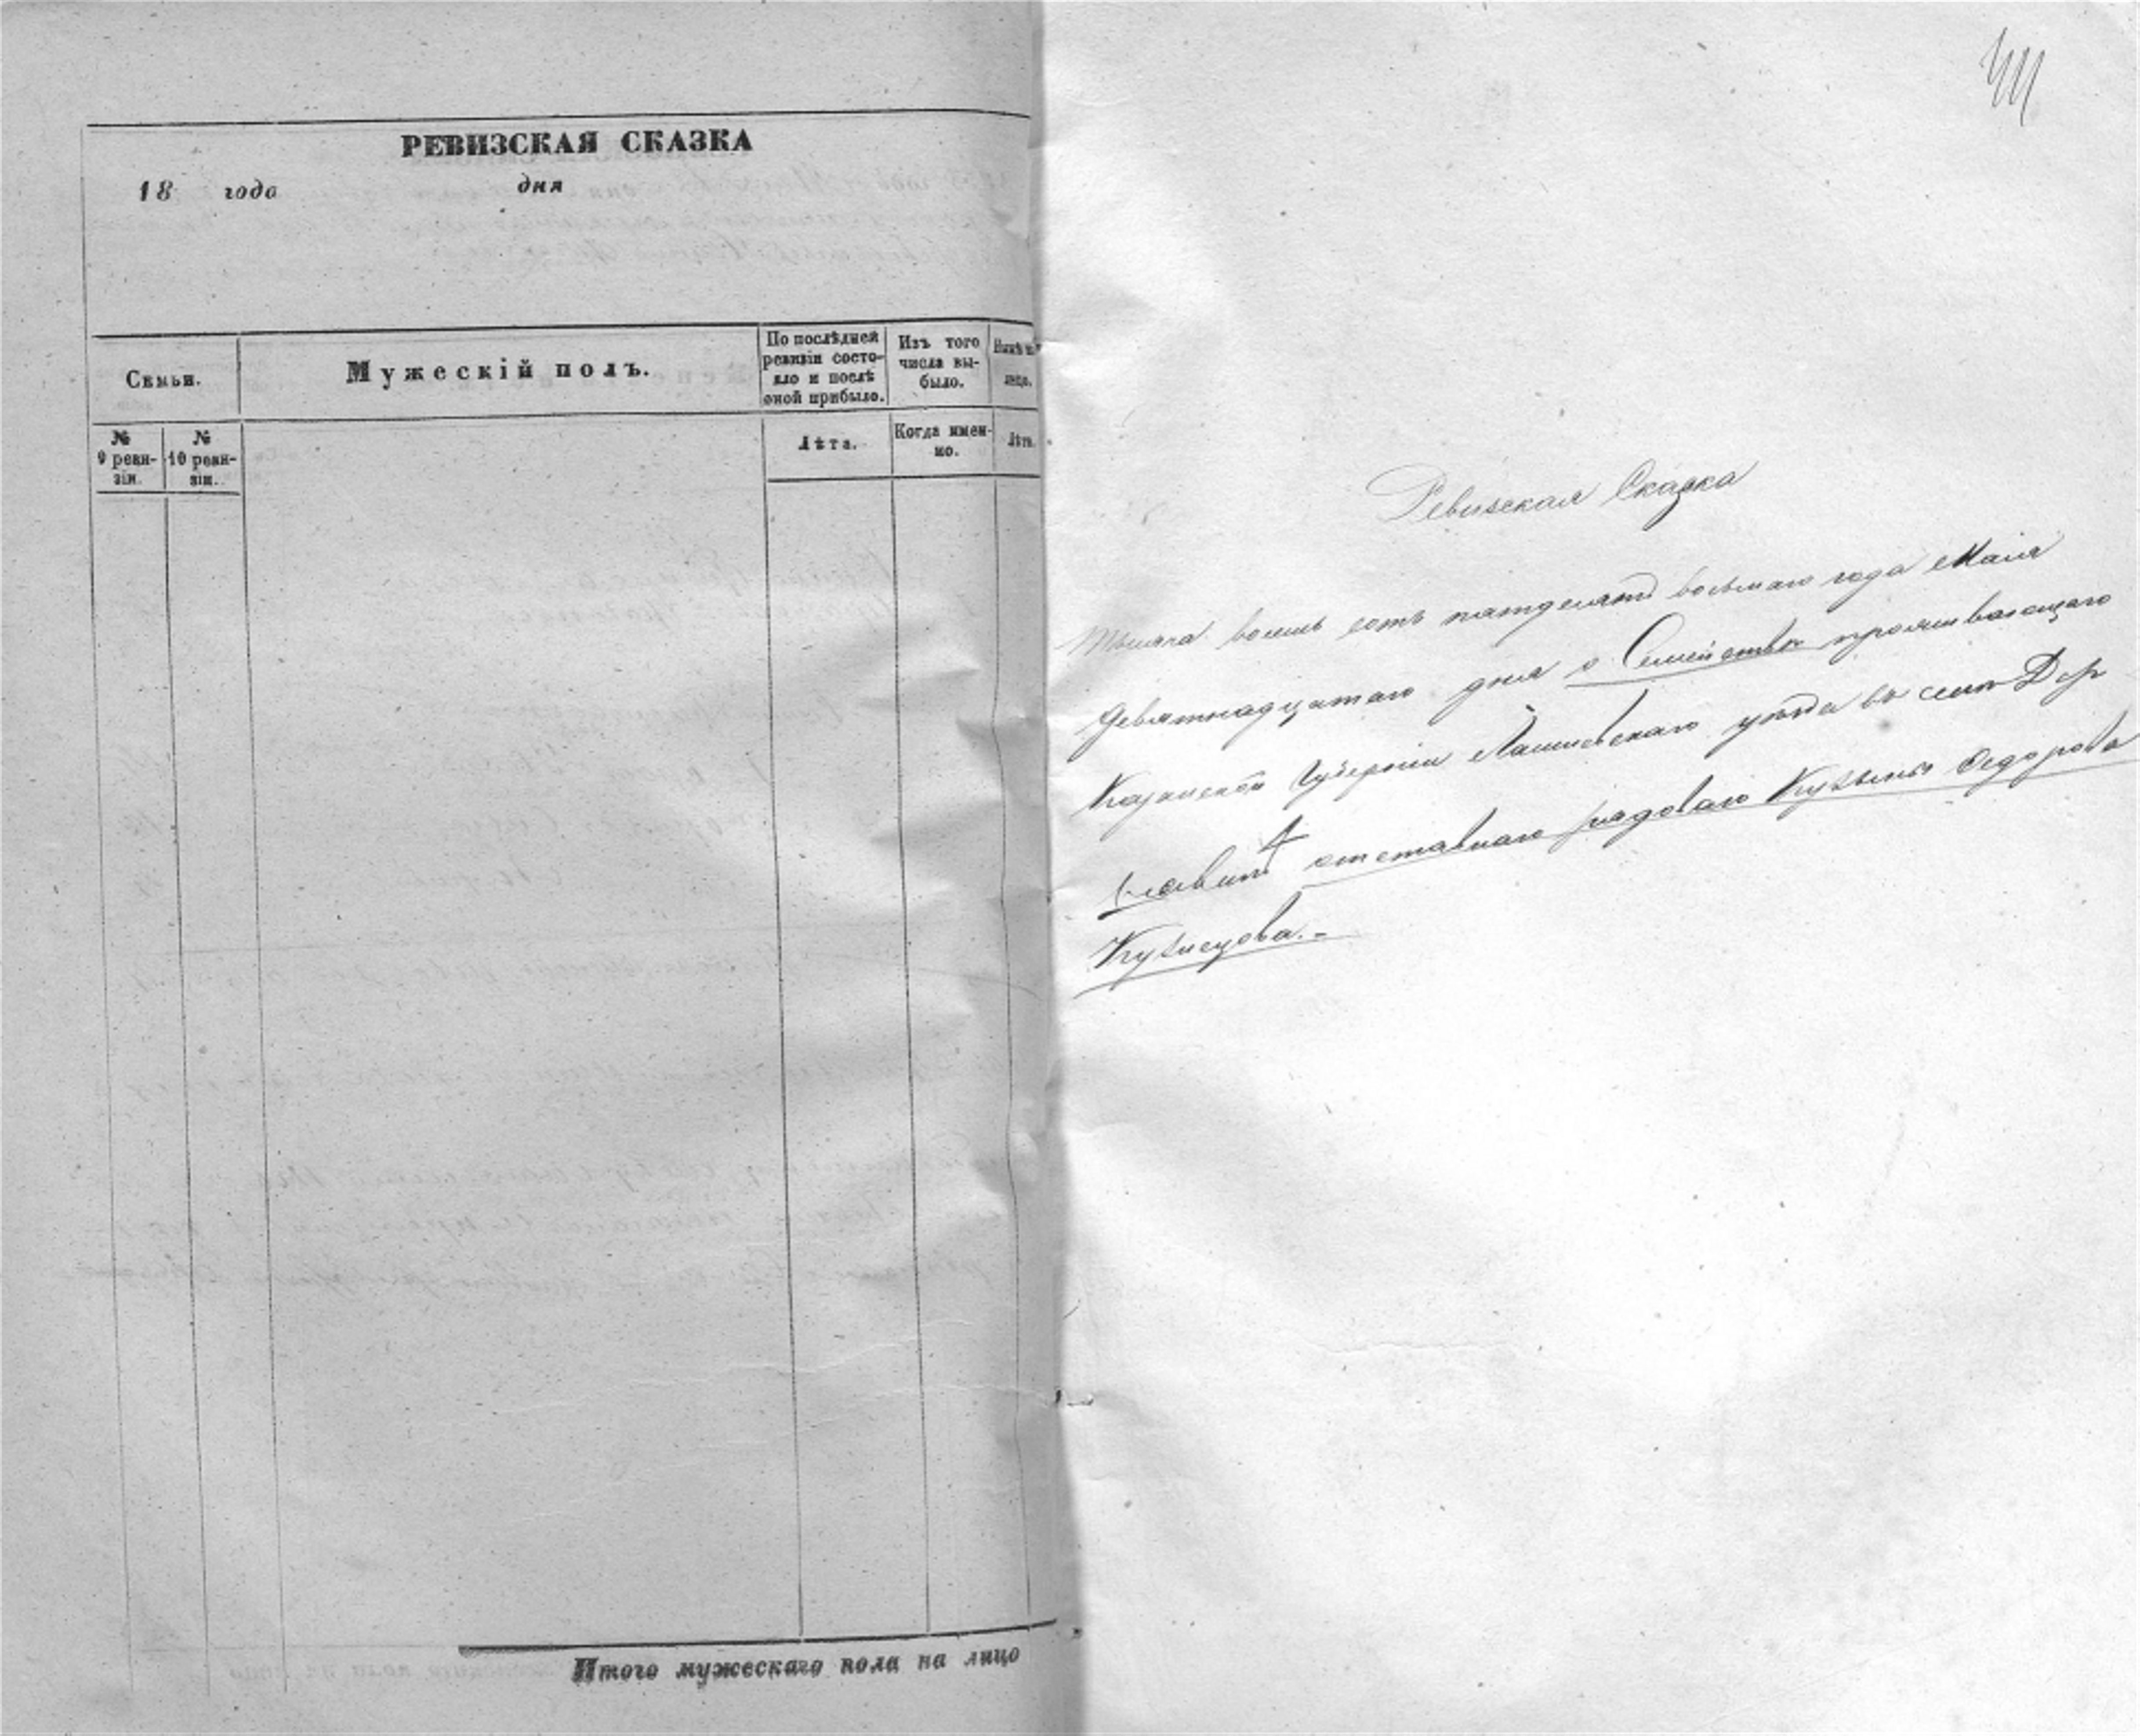 РЕВИЗСКАЯ СКАЗКА
18 года дня
Семьи.
Мужескій полъ.
По послѣдней ревизіи состо-
яло и послѣ
оной прибыло.
Изъ того
числа вы-
было.
лицо.
№
9 реви-
зіи.
№
10 реви-
зіи.
Лѣта.
Когда имен-
но.
Лѣта.
Итого мужескаго пола на лицо
Ревизская Сказка
тысяча восемь сотъ пятдесятъ восьмаго года Маія
девятнадцатаго дня о Семействѣ проживающаго
Казанской Губерніи Лаишевскаго уѣзда въ
отставнаго рядоваго Кузьмы Федорова
Кузнецова.-